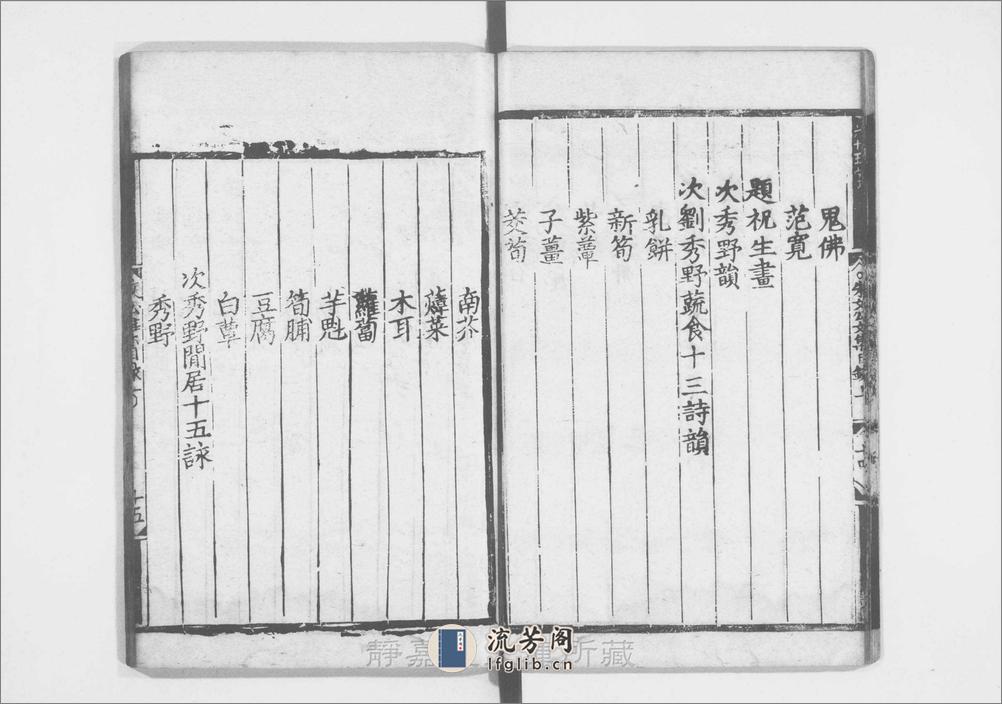 鬼佛
范寬
題祝生畫
次秀野韻
次劉秀野蔬食十三詩韻
乳餅
新筍
紫蕈
子薑
茭筍
南芥
木耳
蘿蔔
芋魁
筍脯
豆腐
白蕈
次秀野閒居十五詠
秀野
十五
流芳阁
lfglib.cn